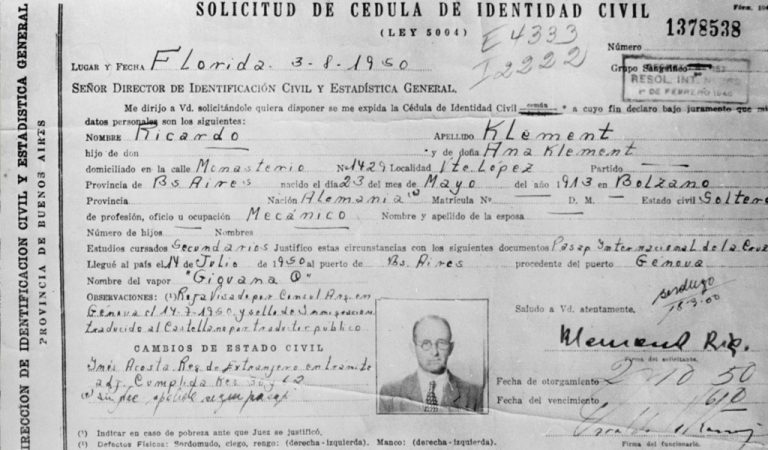 SOLICITUD DE CEDULA DE IDENTIDAD CIVIL
(LEY 5004)
Fórm. 104
1378538
E 4333
I 2222
LUGAR Y FECHA Florida 3-8-1950
Número
Grupo Sanguíneo
RESOL. INT.
1º DE FEBRERO 1940
SEÑOR DIRECTOR DE IDENTIFICACIÓN CIVIL Y ESTADÍSTICA GENERAL.
Me dirijo a Vd. solicitándole quiera disponer se me expida la Cédula de Identidad Civil común * a cuyo fin declaro bajo juramento que mis
datos personales son los siguientes:
NOMBRE Ricardo APELLIDO Klement
hijo de don — y de doña Ana Klement
domiciliado en la calle Monasterio Nº 1429 Localidad Vte. López Partido —
Provincia de Bs Aires nacido el día 23 del mes de Mayo del año 1913 en Bolzano
Provincia Nación Alemania Matrícula Nº — D. M. — Estado civil Soltero
de profesión, oficio u ocupación Mecánico Nombre y apellido de la esposa —
Número de hijos — Nombres —
Estudios cursados Secundarios Justifico estas circunstancias con los siguientes documentos Pasap. Internacional de la Cruz
Llegué al país el 14 de Julio de 1950 al puerto de Bs. Aires procedente del puerto Genova
Nombre del vapor "Giovana C"
OBSERVACIONES: (1) Roja Visado por Consul Arg. en
Genova el 14-7-1950 y sello de Inmigracion
traducido al Castellano por traductor publico
CAMBIOS DE ESTADO CIVIL
Inés Acosta Reg. de Extranjero en tramite
Saludo a Vd. atentamente.
Firma del solicitante.
Fecha de otorgamiento 2-10-50
Fecha de vencimiento
Firma del funcionario.
(1) Indicar en caso de pobreza ante que Juez se justificó.
(2) Defectos Físicos: Sordomudo, ciego, rengo: (derecha-izquierda). Manco: (derecha-izquierda).
DIRECCION DE IDENTIFICACION CIVIL Y ESTADISTICA GENERAL
PROVINCIA DE BUENOS AIRES